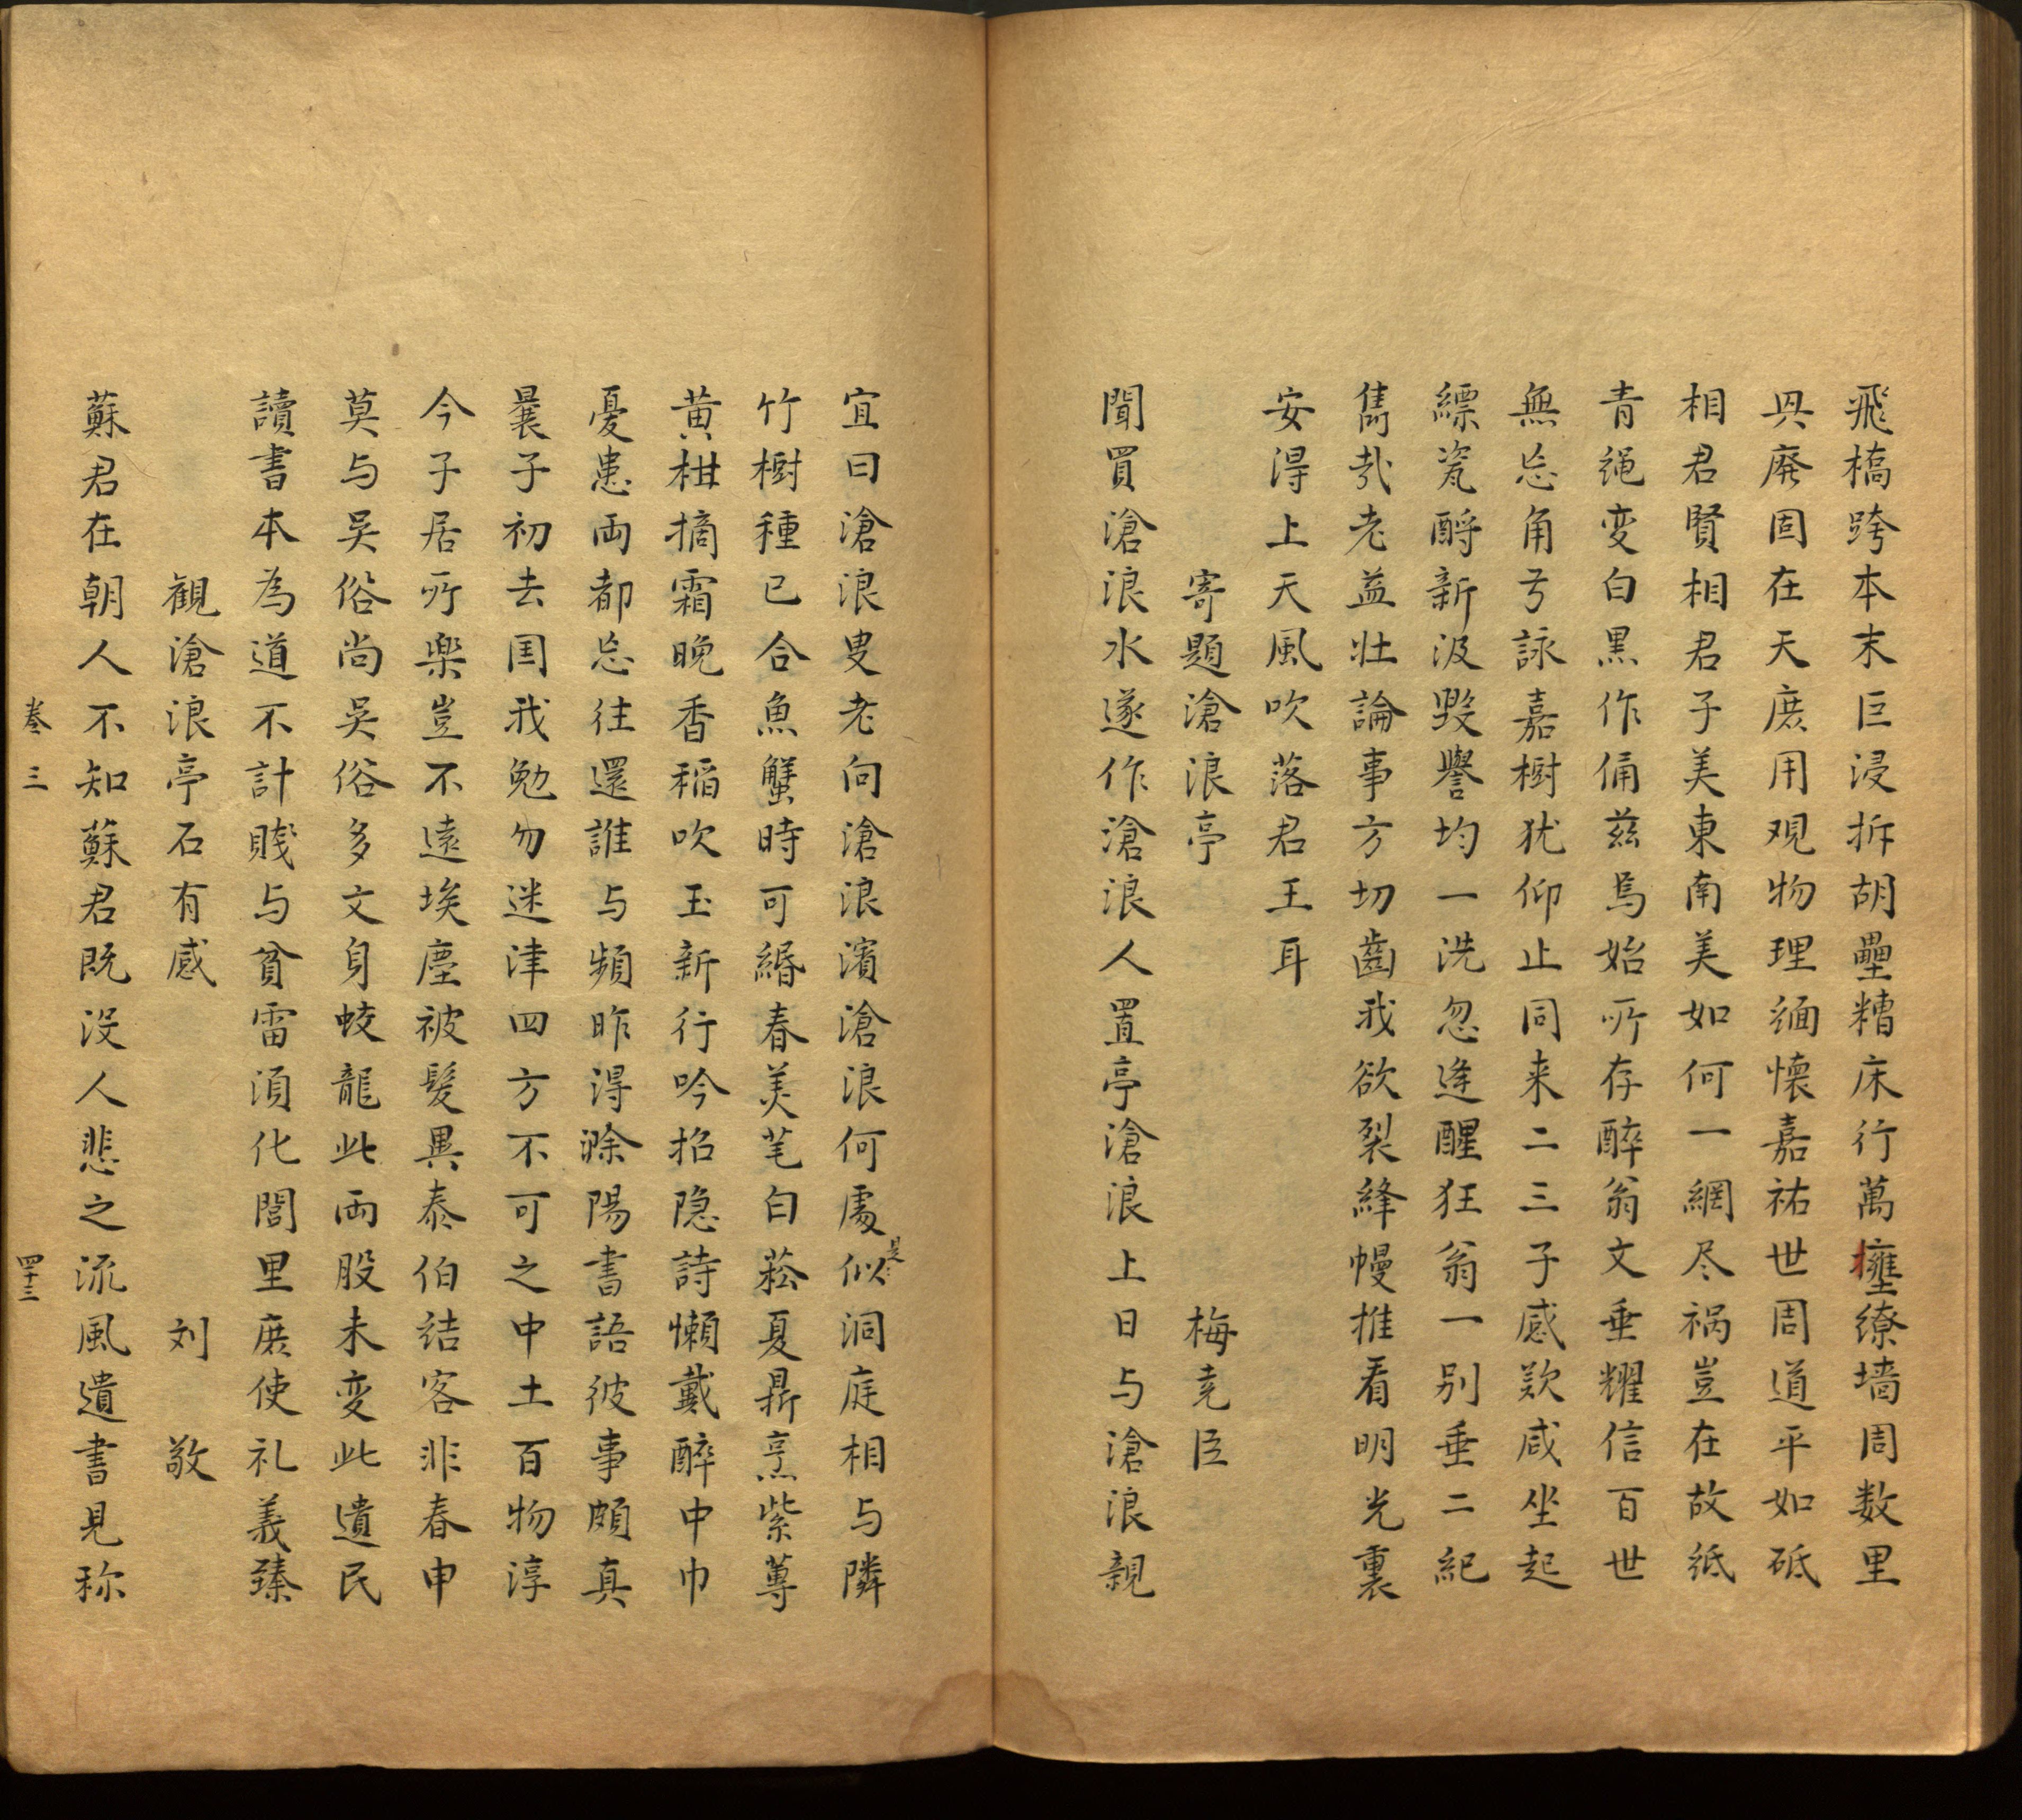 飛橋跨本末巨浸拆胡壘糟床行萬㙲繚墙周数里
兴廃固在天庶用观物理緬懷嘉祐世周道平如砥
相君賢相君子美東南美如何一網尽祸豈在故纸
青绳变白黑作俑兹為始所存醉翁文垂耀信百世
無忘角弓詠嘉樹犹仰止同来二三子感歎咸坐起
縹瓷酹新汲毁譽均一洗忽逢醒狂翁一别垂二紀
雋哉老益壮論事方切齒我欲裂絳幔推看明光裏
安淂上天風吹落君王耳
寄題滄浪亭 梅尭臣
聞買滄浪水遂作滄浪人置亭滄浪上日与滄浪親
宜曰滄浪叟老向滄浪濱滄浪何處似是洞庭相与隣
竹樹種已合魚蟹時可緡春羙芼白菘夏鼎烹紫蓴
黄柑摘霜晚香稲吹玉新行吟招隐詩懶戴醉中巾
憂患両都忘往還誰与頻昨淂滁陽書語彼事頗真
曩子初去国我勉勿迷津四方不可之中土百物淳
今子居所樂豈不遠埃塵被髪異泰伯结客非春申
莫与吴俗尚吴俗多文身蛟龍此両股未变此遺民
讀書本為道不計賎与貧雷湏化閭里庶使礼義臻
観滄浪亭石有感 刘敬
蘇君在朝人不知蘇君既没人悲之流風遺書見称
卷三 四十三